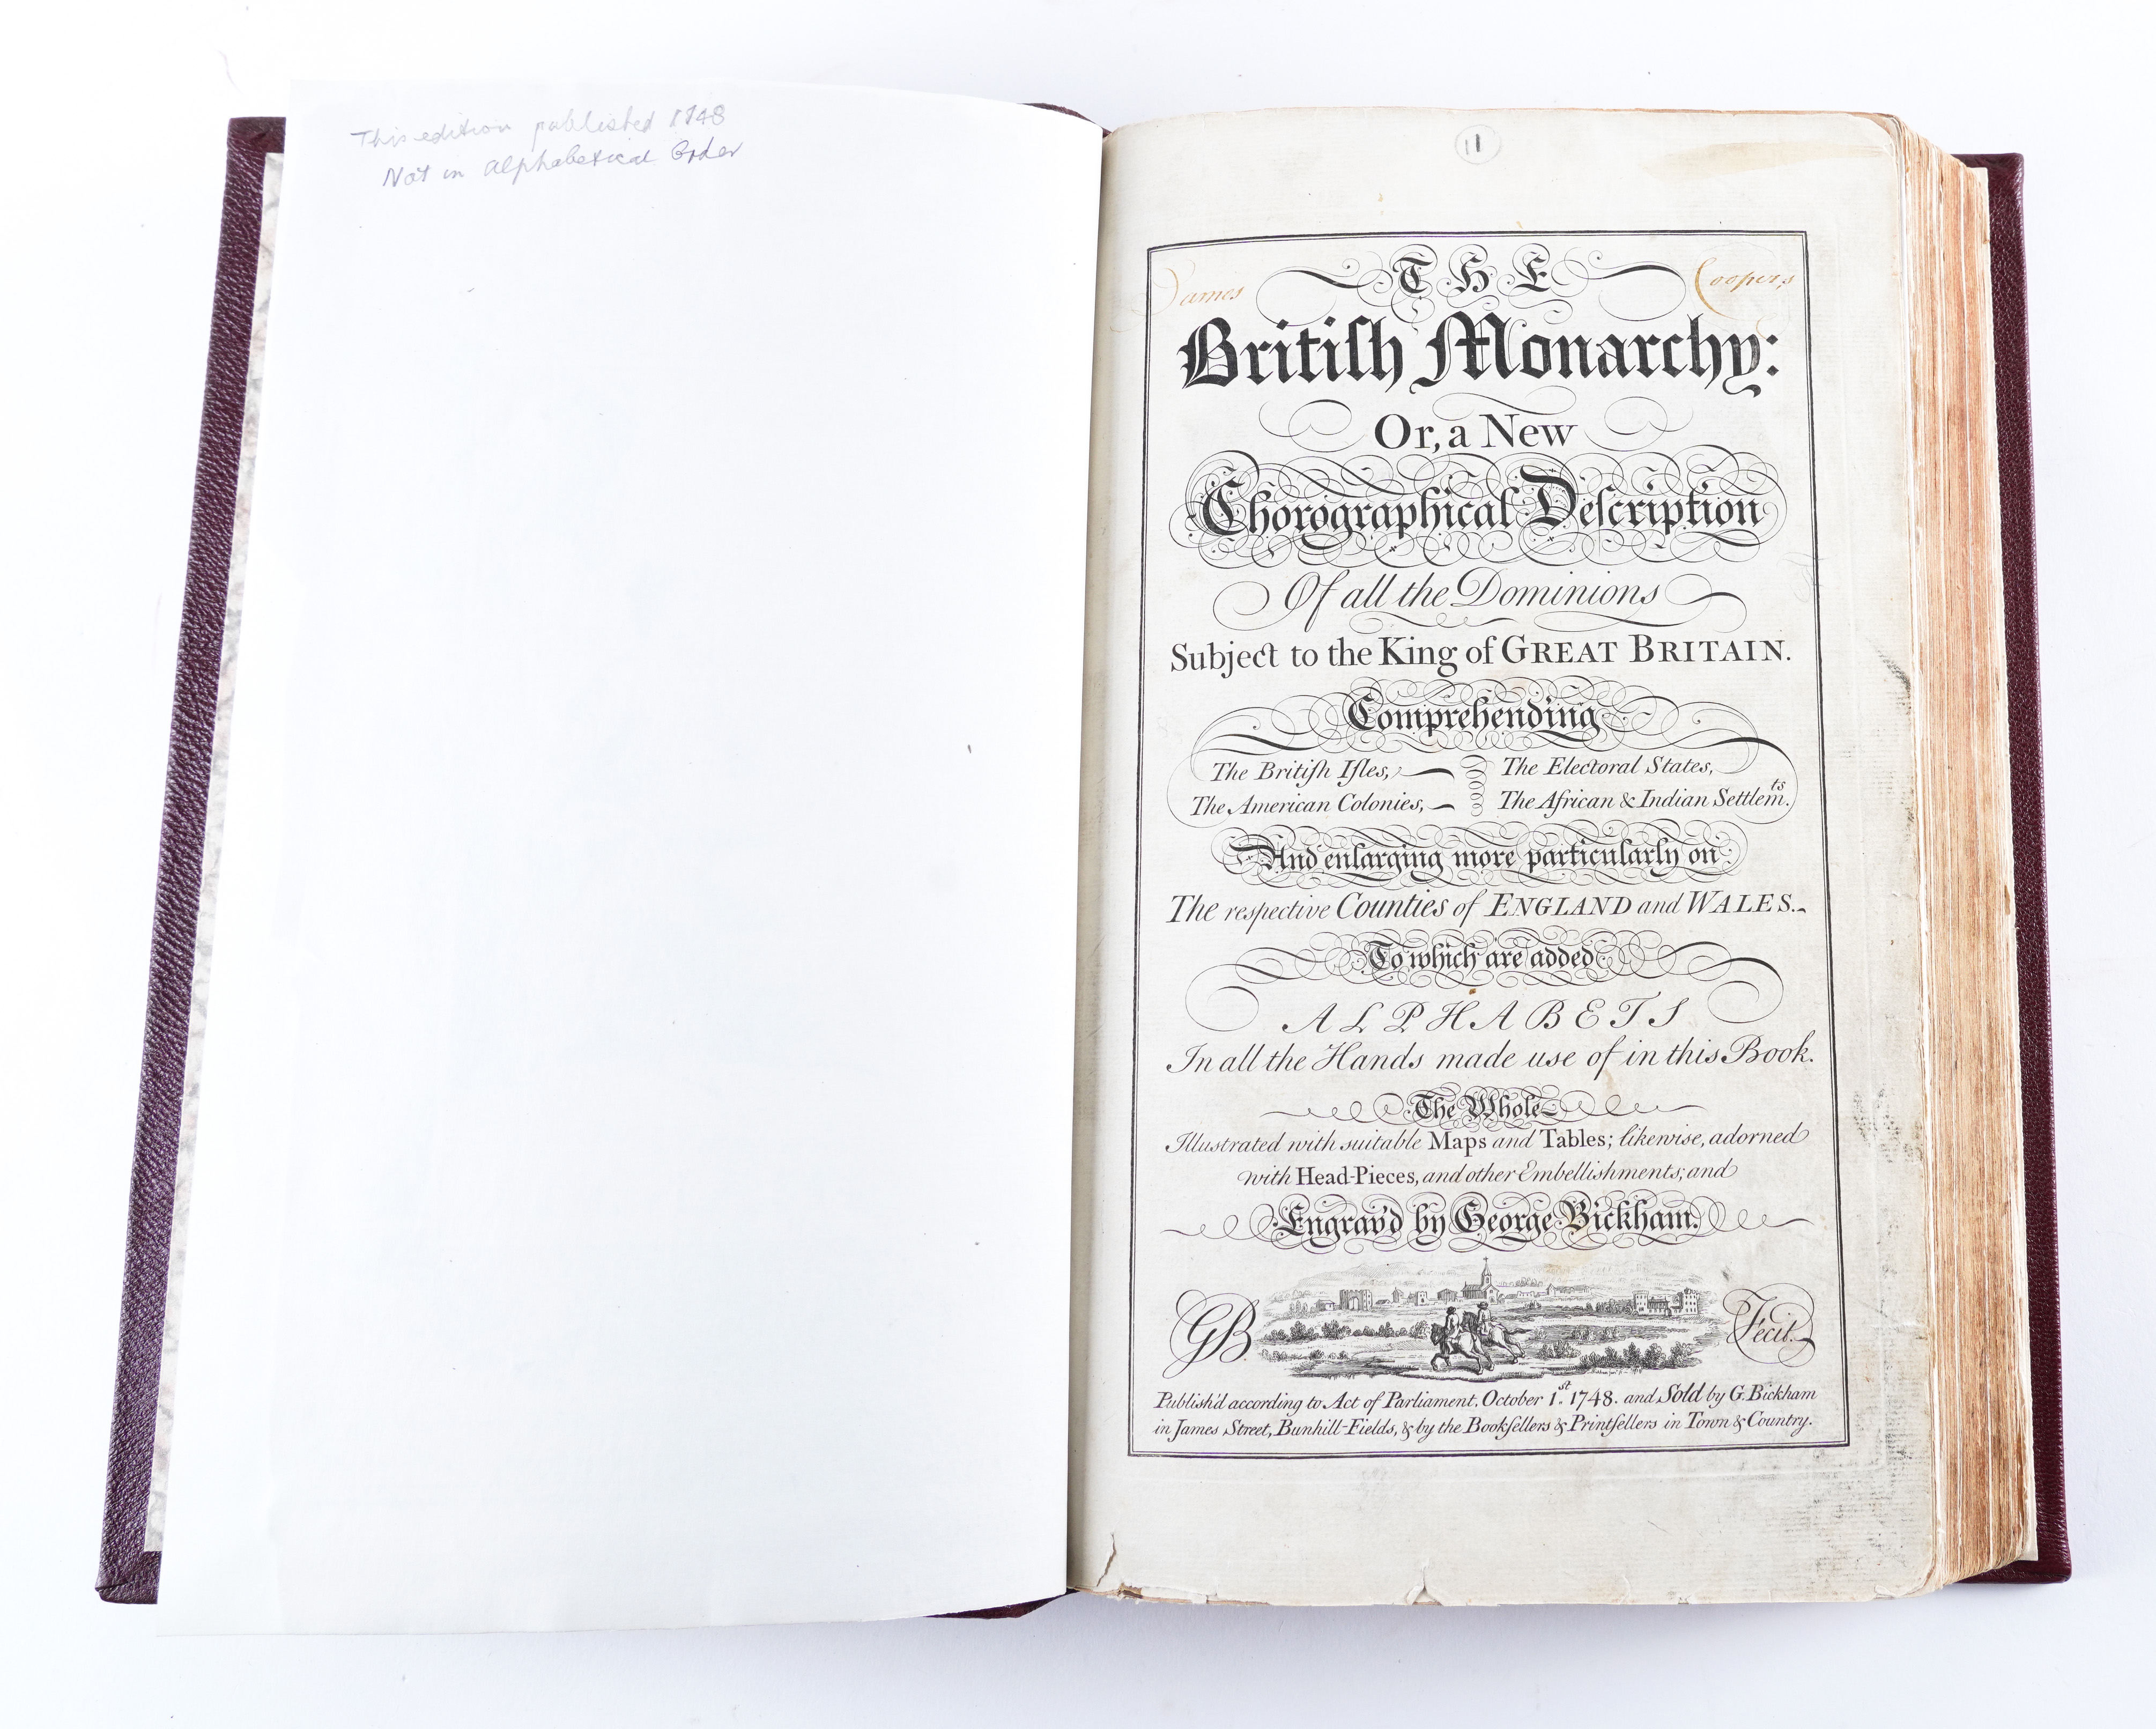 This edition published 1748
Not in alphabetical Order
11
THE
James Coopers
Britiſh Monarchy:
Or, a New
Chorographical Deſcription
Of all the Dominions
Subject to the King of GREAT BRITAIN.
Comprehending
The Britiſh Iſles, The Electoral States,
The American Colonies, The African & Indian Settlem.ts
And enlarging more particularly on
The respective Counties of ENGLAND and WALES.
To which are added
ALPHABETS
In all the Hands made use of in this Book.
The Whole
Illustrated with suitable Maps and Tables; likewise, adorned
with Head-Pieces, and other Embellishments; and
Engrav'd by George Bickham.
GB Fecit.
Publish'd according to Act of Parliament, October 1.st 1748. and Sold by G. Bickham
in James Street, Bunhill-Fields, & by the Bookſellers & Printſellers in Town & Country.